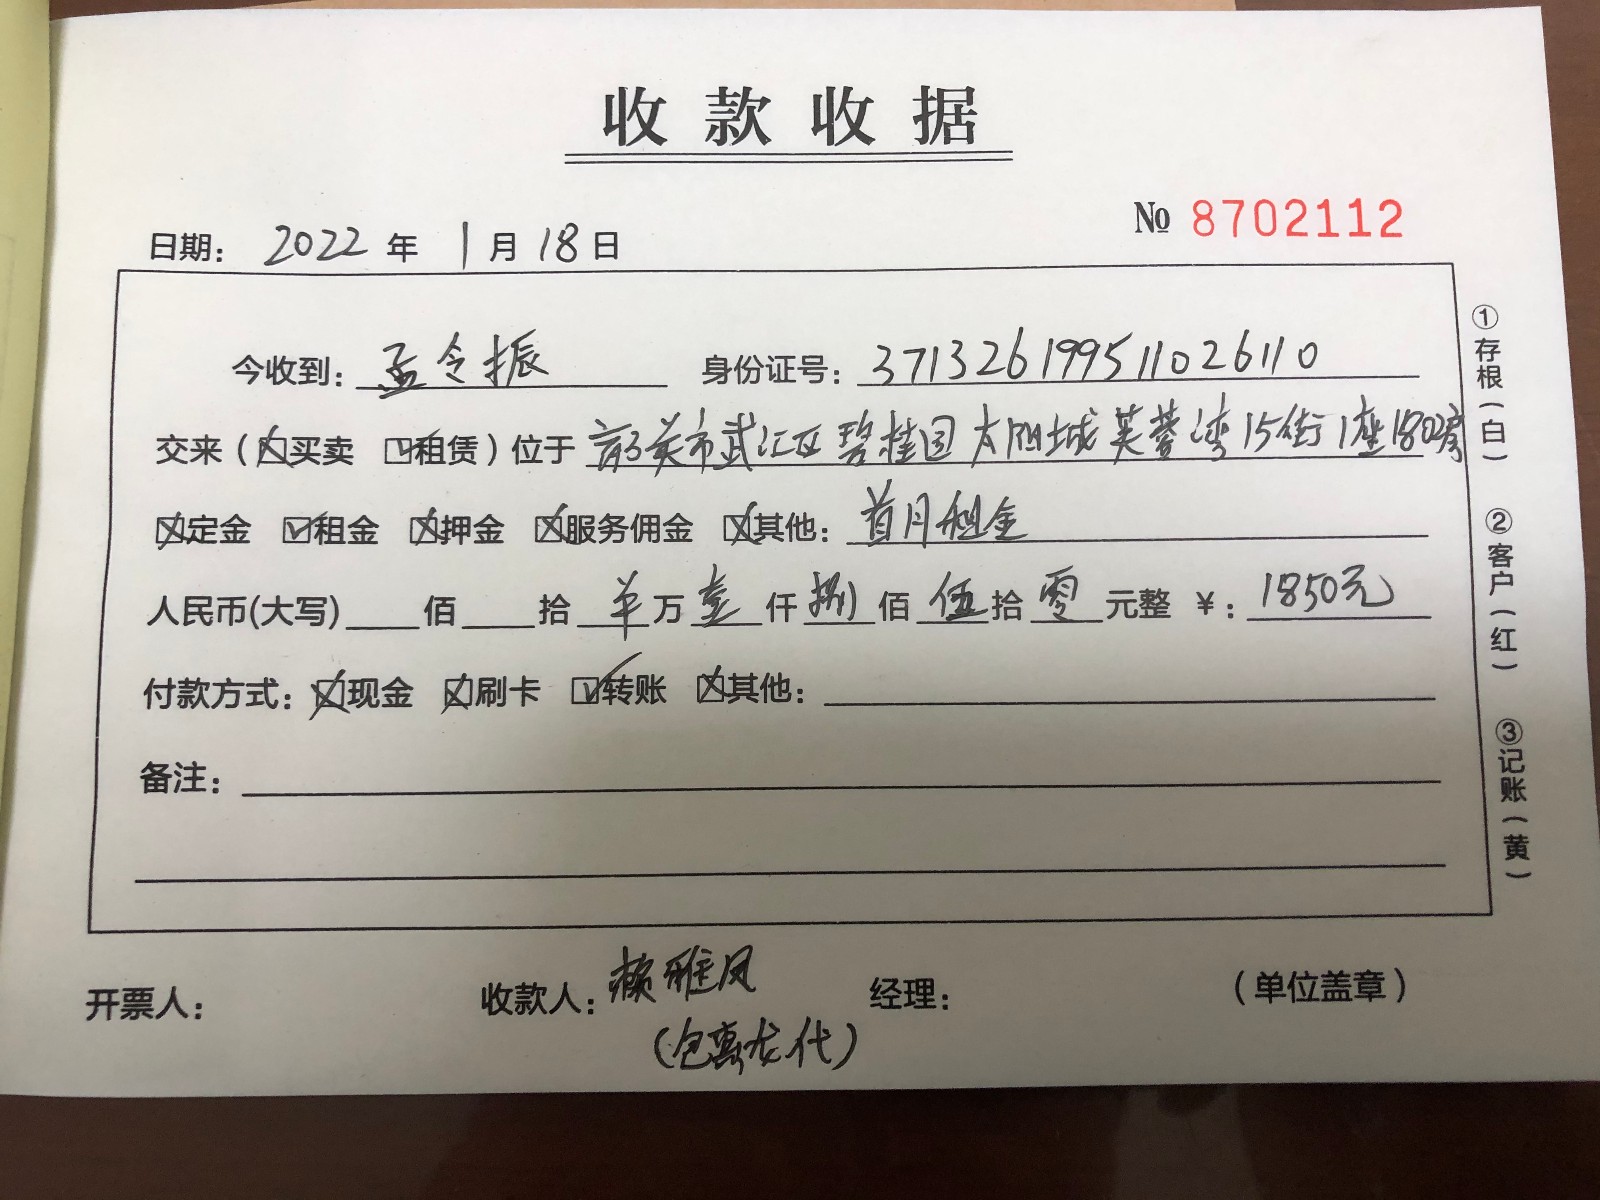 收款收据
№ 8702112
日期: 2022 年 1 月 18 日
今收到: 孟令振 身份证号: 371326199511026110
交来(☒买卖 ☑租赁)位于 韶关市武江区碧桂园太阳城芙蓉湾15街1座1802房
☒定金 ☑租金 ☒押金 ☒服务佣金 ☒其他: 首月租金
人民币(大写) 佰 拾 万 壹 仟 捌 佰 伍 拾 零 元整 ¥: 1850元
付款方式: ☒现金 ☒刷卡 ☑转账 ☒其他:
备注:
开票人: 收款人: 赖雅凤 经理: (单位盖章)
(包惠龙代)
①存根(白) ②客户(红) ③记账(黄)